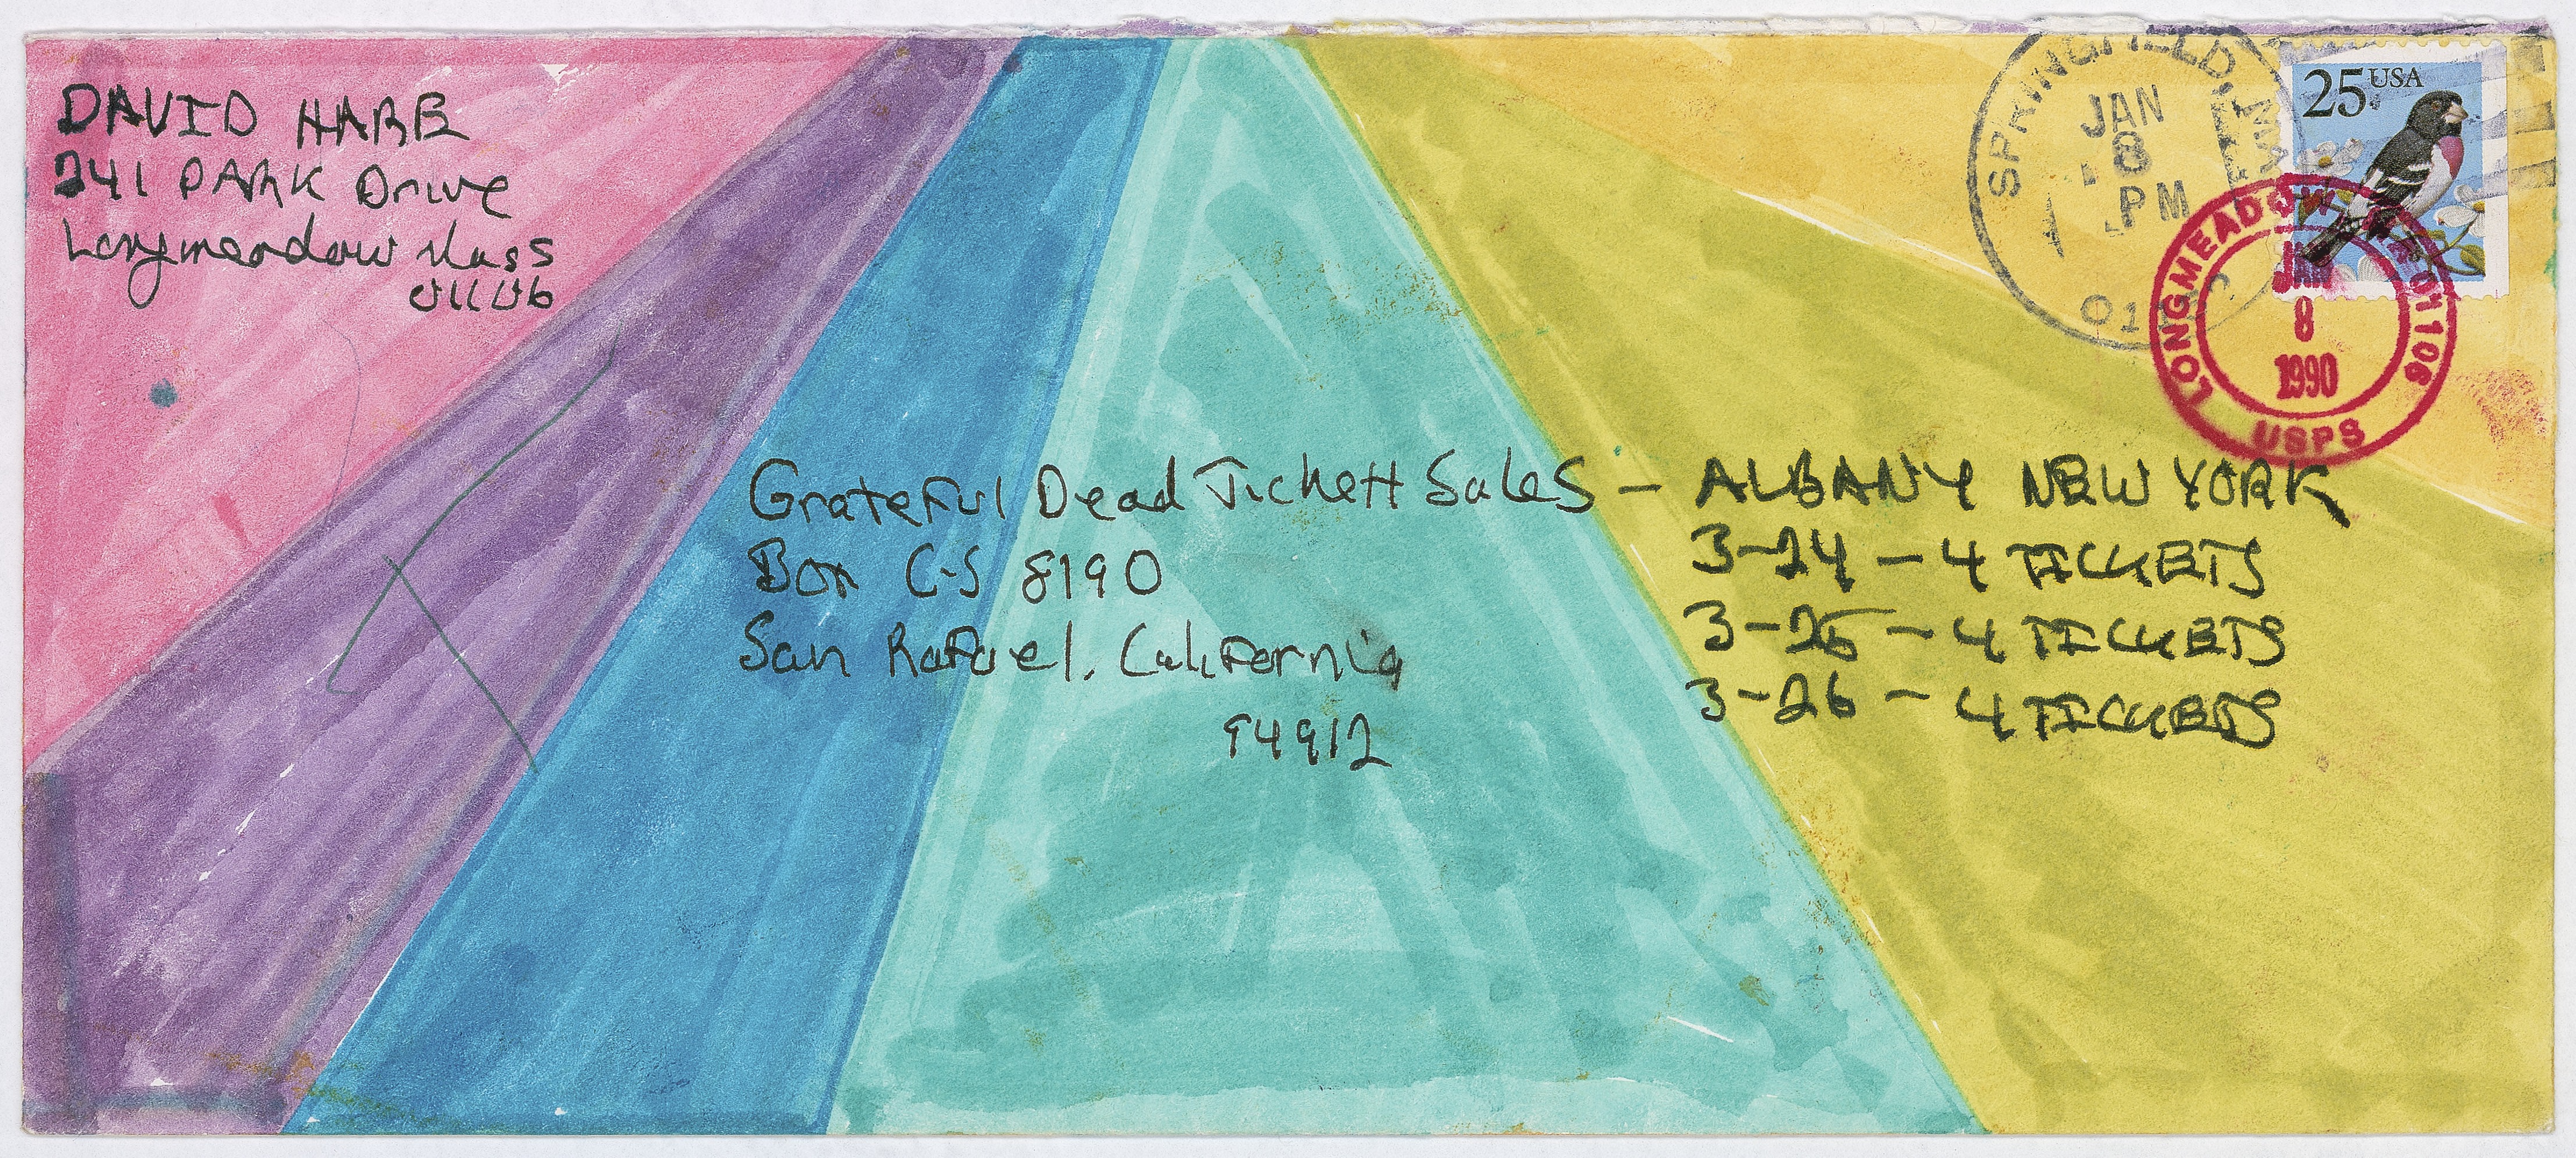 DAVID HARB
241 PARK Drive
Longmeadow Mass
01106
SPRINGFIELD, MA
JAN
8
PM
25 USA
LONGMEADOW 01106
JAN
8
1990
USPS
Grateful Dead Tickett Sales - ALBANY NEW YORK
Box C-S 8190
San Rafael, California
94912
3-24 - 4 TICKETS
3-25 - 4 TICKETS
3-26 - 4 TICKETS